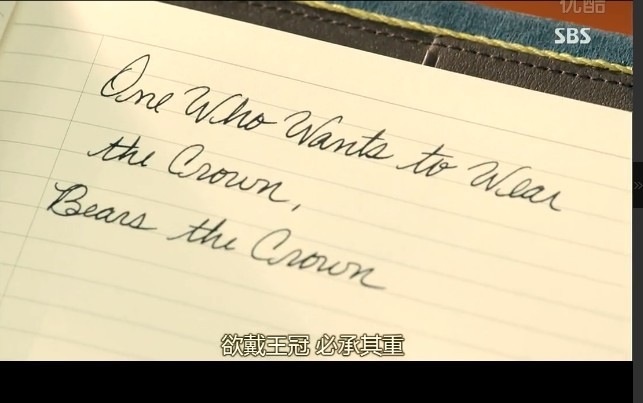 优酷
SBS
One Who Wants to Wear
the Crown,
Bears the Crown
欲戴王冠 必承其重